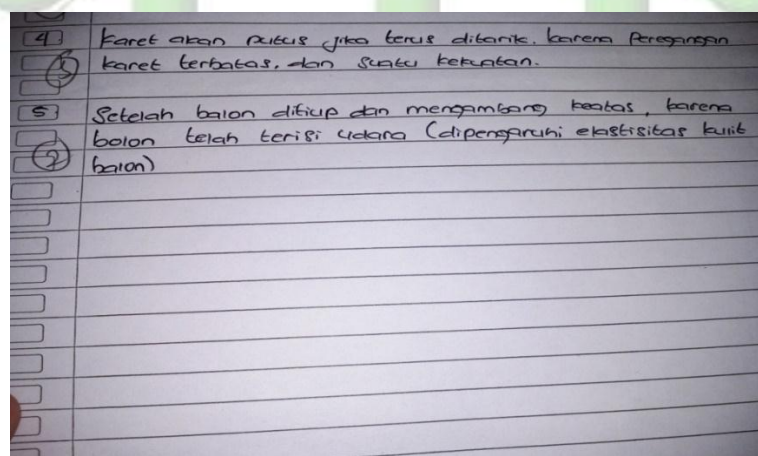 4 Karet akan putus jika terus ditarik. karena Peregangan
karet terbatas, dan suatu kekuatan.
5 Setelah balon ditiup dan mengambang keatas, karena
balon telah terisi udara (dipengaruhi elastisitas kulit
balon)